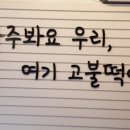 주봐요 우리,
여기 고불떡